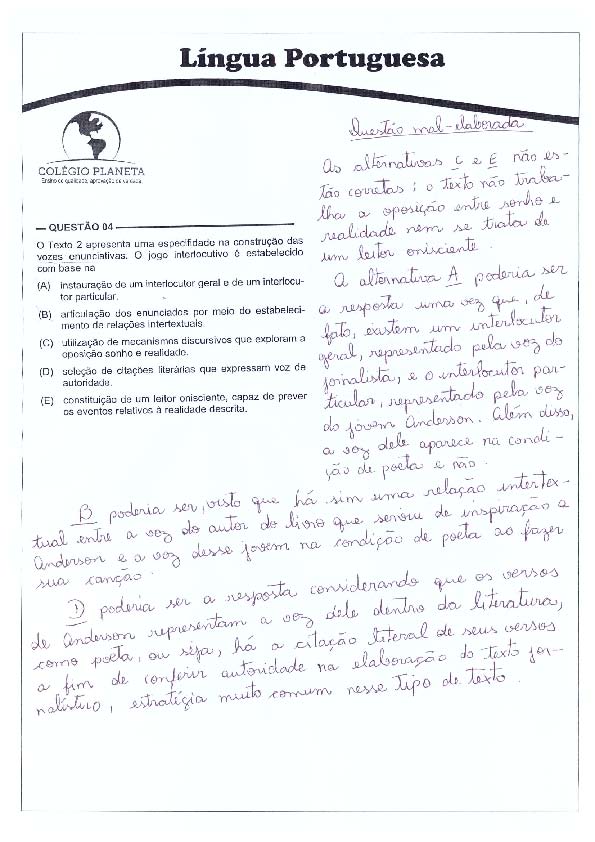 Língua Portuguesa
COLÉGIO PLANETA
Ensino de qualidade, aprovação de verdade.
Questão mal-elaborada
As alternativas C e E não es-
tão corretas: o texto não traba-
lha a oposição entre sonho e
realidade nem se trata de
um leitor onisciente.
A alternativa A poderia ser
a resposta uma vez que, de
fato, existem um interlocutor
geral, representado pela voz do
jornalista, e o interlocutor par-
ticular, representado pela voz
do jovem Anderson. Além disso,
a voz dele aparece na condi-
ção de poeta e não.
QUESTÃO 04
O Texto 2 apresenta uma especifidade na construção das
vozes enunciativas. O jogo interlocutivo é estabelecido
com base na
(A) instauração de um interlocutor geral e de um interlocu-
tor particular.
(B) articulação dos enunciados por meio do estabeleci-
mento de relações intertextuais.
(C) utilização de mecanismos discursivos que exploram a
oposição sonho e realidade.
(D) seleção de citações literárias que expressam voz de
autoridade.
(E) constituição de um leitor onisciente, capaz de prever
os eventos relativos à realidade descrita.
B poderia ser, visto que há sim uma relação intertex-
tual entre a voz do autor do livro que serviu de inspiração a
Anderson e a voz desse jovem na condição de poeta ao fazer
sua canção.
D poderia ser a resposta considerando que os versos
de Anderson representam a voz dele dentro da literatura,
como poeta, ou seja, há a citação literal de seus versos
a fim de conferir autoridade na elaboração do texto jor-
nalístico, estratégia muito comum nesse tipo de texto.